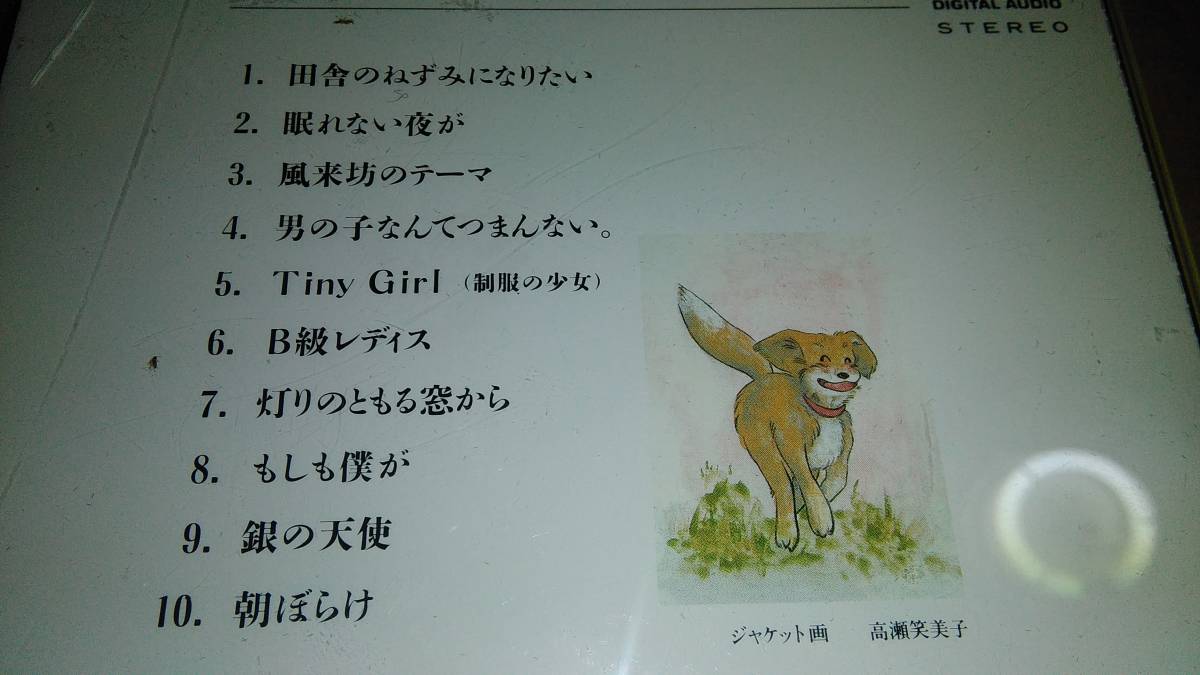 DIGITAL AUDIO
STEREO
1. 田舎のねずみになりたい
2. 眠れない夜が
3. 風来坊のテーマ
4. 男の子なんてつまんない。
5. Tiny Girl (制服の少女)
6. B級レディス
7. 灯りのともる窓から
8. もしも僕が
9. 銀の天使
10. 朝ぼらけ
ジャケット画 高瀬笑美子